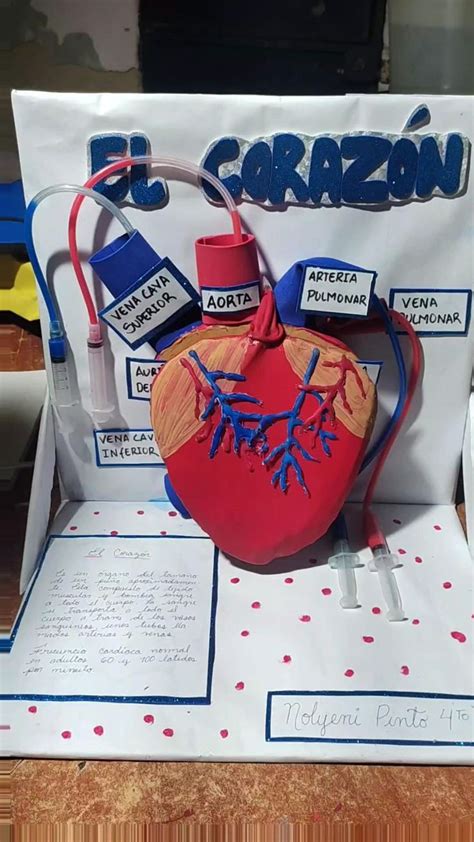 EL CORAZÓN
VENA CAVA
SUPERIOR
AORTA
ARTERIA
PULMONAR
VENA
PULMONAR
VENA CAVA
INFERIOR
El Corazón
Es un organo del tamano
de un puño aproximadamen
te. Esta compuesto de tejido
muscular y bombea sangre
a todo el cuerpo. La sangre
se transporta a todo el
Cuerpo a traves de los vasos
sanguineos, unos tubos lla
mados arterias y venas.
Frecuencia cardiaca normal
en adultos 60 y 100 latidos
por minuto
Nolyeni Pinto 4to